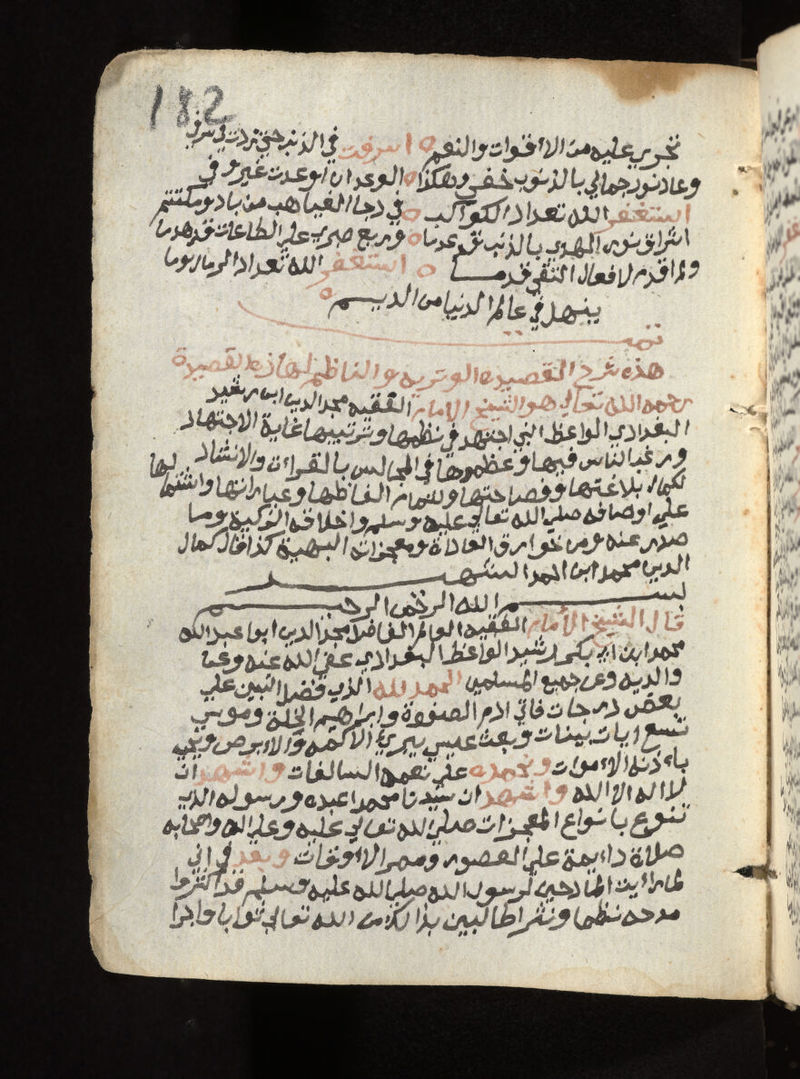 182
تجري عليه من الاأقوات والنعم ه اسرفت في الذنب حتى زدت في سرفي
وعاد نور جمالي بالذنوب خفي وهكذا ه الوغد ان اوعدت غير وفي
استغفر الله تعداد الكواكب ه في دجا الغياهب من باد ومكتتم
اشراق نور الهدى بالذنب قد عدما ه وربع صبري على الطاعات قد هدما
ولم اقدم لافعال التقى قدما ه استغفر الله تعداد الرمال وما
ينهل في عالم الدنيا من الديم ه
تمت
هذه شرح القصيدة الوترية والناظم لهاذه القصيدة
رحمه الله تعالى هو الشيخ الامام الفقيه مجد الدين ابن رشيد
البغدادي الواعظ الذي اجتهد في نظمها وترتيبها غاية الاجتهاد
ورغب الناس فيها وعظموها في المجالس بالقراءة والانشاد
لكمال بلاغتها وفصاحتها ولتمام الفاظها وعباراتها واشتمالها
على اوصافه صلى الله تعالى عليه وسلم واخلاقه الزكية وما
صدر عنه من خوارق العادة ومعجزاته البهية كذا قال كمال
الدين محمد ابن احمد
بسم الله الرحمن الرحيم
قال الشيخ الأمام الفقيه العالم الفاضل مجد الدين ابوا عبد الله
محمد ابن ابي بكر ارشيد الواعظ البغدادي عفى الله عنه وعن
والديه وعن جميع المسلمين الحمد لله الذي فضل النبين على
بعض درجات فاتى ادم الصفوة وابراهيم الخلة وموسى
تسع ايات بينات وبعث عيسى يبرئ الاكمه والابرص ويحي
باءذنه الاموات ونحمده على نعمه السالفات واشهد ان
لا اله الا الله واشهد ان سيدنا محمدا عبده ورسوله الذي
تنوع بانواع المعجزات صلى الله تعالى عليه وعلى اله واصحابه
صلاة داءيمة على العصور وممر الاأوقات وبعد فاني
لما راءيت المادحين لرسول الله صلى الله عليه وسلم قد اكثروا
مدحه نظما ونثرا طالبين بذالك من الله تعالى ثوابا واجرا